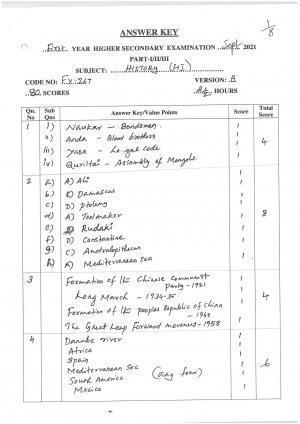 1/8
ANSWER KEY
First YEAR HIGHER SECONDARY EXAMINATION Sept 2021
PART-I/II/III
SUBJECT: HISTORY (HI)
CODE NO: F.Y. 267 VERSION: B
80 SCORES HOURS
Qn. No Sub Qns Answer Key/Value Points Score Total Score
1 i) Naukar - Bondsmen 1
ii) Anda - Blood brothers 1
iii) Yasa - Legal code 1 4
iv) Quriltai - Assembly of Mongols 1
2 a) A) Ali 1
b) C) Damascus 1
c) D) Ptolemy 1
d) A) Toolmaker 1 8
e) B) Rudaki 1
f) D) Constantine 1
g) C) Australopithecus 1
h) A) Mediterranean Sea 1
3 Formation of the Chinese Communist Party - 1921 1
Long March - 1934-35 1 4
Formation of the peoples Republic of China - 1949 1
The Great Leap Forward movement - 1958 1
4 Danube river
Africa
Spain
Mediterranean Sea (any four) 6
South America
Mexico